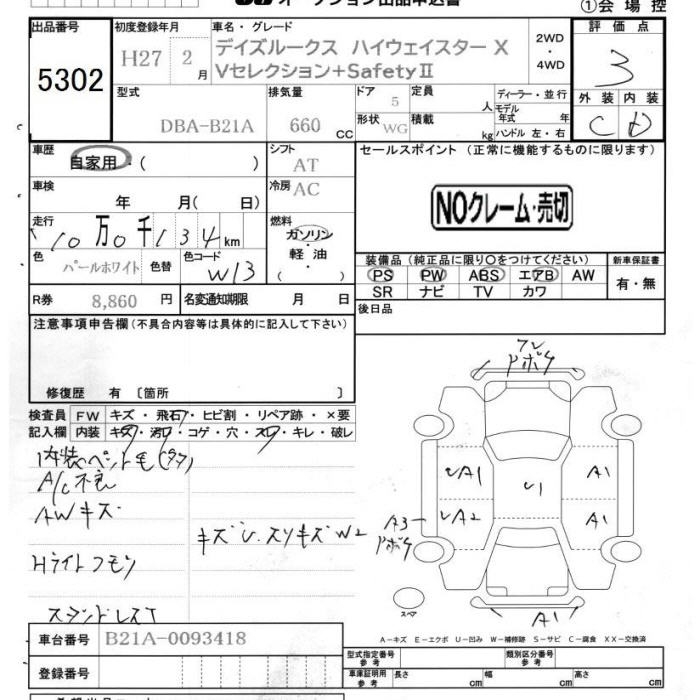 オークション出品申込書
①会場控
出品番号
5302
初度登録年月
H27 2月
車名・グレード
デイズルークス ハイウェイスター X
Vセレクション+SafetyⅡ
2WD
・
4WD
評価点
3
外装 内装
C D
型式
DBA-B21A
排気量
660 CC
ドア 5
形状 WG
定員 人
積載 kg
ディーラー・並行
モデル
年式 年
ハンドル 左・右
車歴
自家用・( )
シフト
AT
車検
年 月( 日)
冷房 AC
走行
10万0千134km
燃料
ガソリン
軽油
( )
色
パールホワイト
色替
色コード
W13
R券 8,860 円
名変通知期限 月 日
セールスポイント (正常に機能するものに限ります)
NOクレーム・売切
装備品 (純正品に限り○をつけてください)
PS PW ABS エアB AW
SR ナビ TV カワ
新車保証書
有・無
後日品
注意事項申告欄(不具合内容等は具体的に記入して下さい)
修復歴 有〔箇所 〕
検査員
記入欄
FW キズ・飛石・ヒビ割・リペア跡・×要
内装 キズ・汚レ・コゲ・穴・スレ・キレ・破レ
A/C不良
AWキズ
キズ U スリキズ W2
Hライトクモリ
UA1
UA2
U1
A1
A1
A3
A1
スペア
A-キズ E-エクボ U-凹み W-補修跡 S-サビ C-腐食 XX-交換済
車台番号 B21A-0093418
登録番号
型式指定番号
参考
類別区分番号
参考
車庫証明用
参考
長さ cm
幅 cm
高さ cm